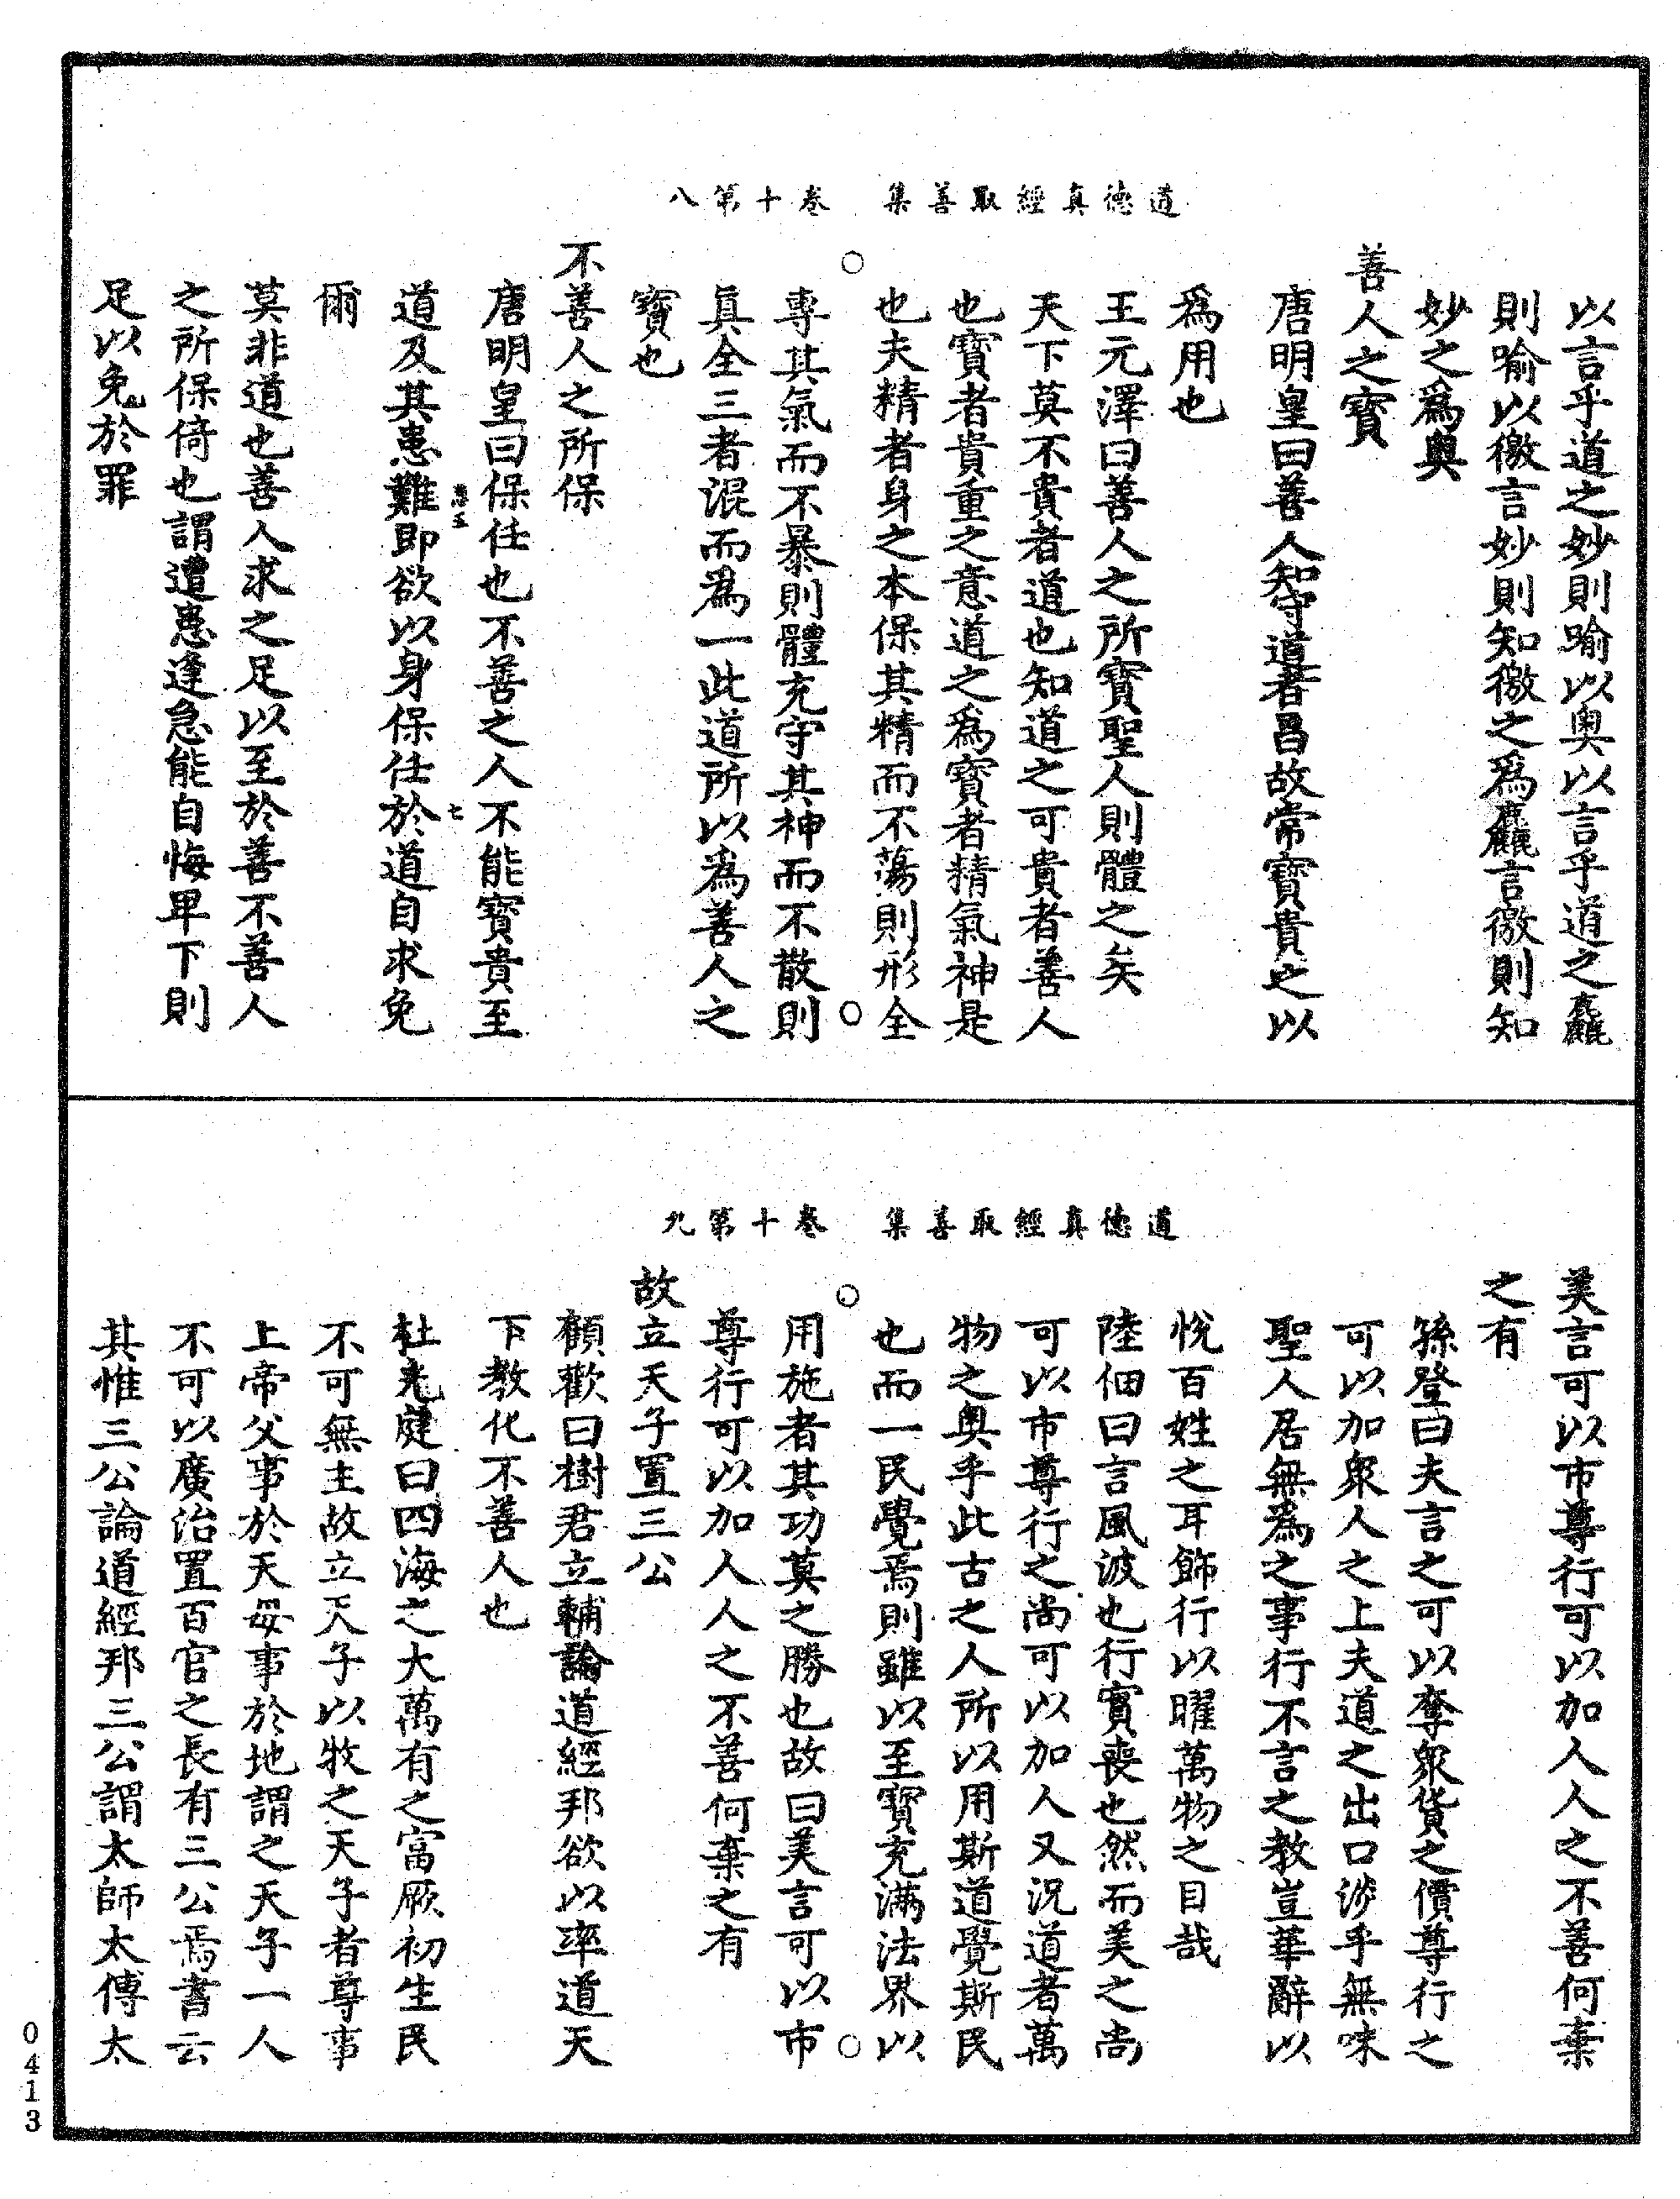 道德真經取善集　卷十第八
以言乎道之妙則喻以奧以言乎道之麤
則喻以徼言妙則知徼之爲麤言徼則知
妙之爲奧
善人之寶
唐明皇曰善人知守道者昌故常寶貴之以
爲用也
王元澤曰善人之所寶聖人則體之矣
天下莫不貴者道也知道之可貴者善人
也寶者貴重之意道之爲寶者精氣神是
也夫精者身之本保其精而不蕩則形全
專其氣而不暴則體充守其神而不散則
真全三者混而爲一此道所以爲善人之
寶也
不善人之所保
唐明皇曰保任也不善之人不能寶貴至
七
道及其患難即欲以身保任於道自求免
爾
莫非道也善人求之足以至於善不善人
之所保倚也謂遭患逢急能自悔卑下則
足以免於罪
道德真經取善集　卷十第九
美言可以市尊行可以加人人之不善何棄
之有
孫登曰夫言之可以奪衆貨之價尊行之
可以加衆人之上夫道之出口渉乎無味
聖人居無爲之事行不言之教豈華辭以
悅百姓之耳飾行以曜萬物之目哉
陸佃曰言風波也行實喪也然而美之尚
可以市尊行之尚可以加人又況道者萬
物之奧乎此古之人所以用斯道覺斯民
也而一民覺焉則雖以至寶充滿法界以
用施者其功莫之勝也故曰美言可以市
尊行可以加人人之不善何棄之有
故立天子置三公
顧歡曰樹君立輔論道經邦欲以率道天
下教化不善人也
杜光庭曰四海之大萬有之富厥初生民
不可無主故立天子以牧之天子者尊事
上帝父事於天母事於地謂之天子一人
不可以廣治置百官之長有三公焉書云
其惟三公論道經邦三公謂太師太傅太
0413